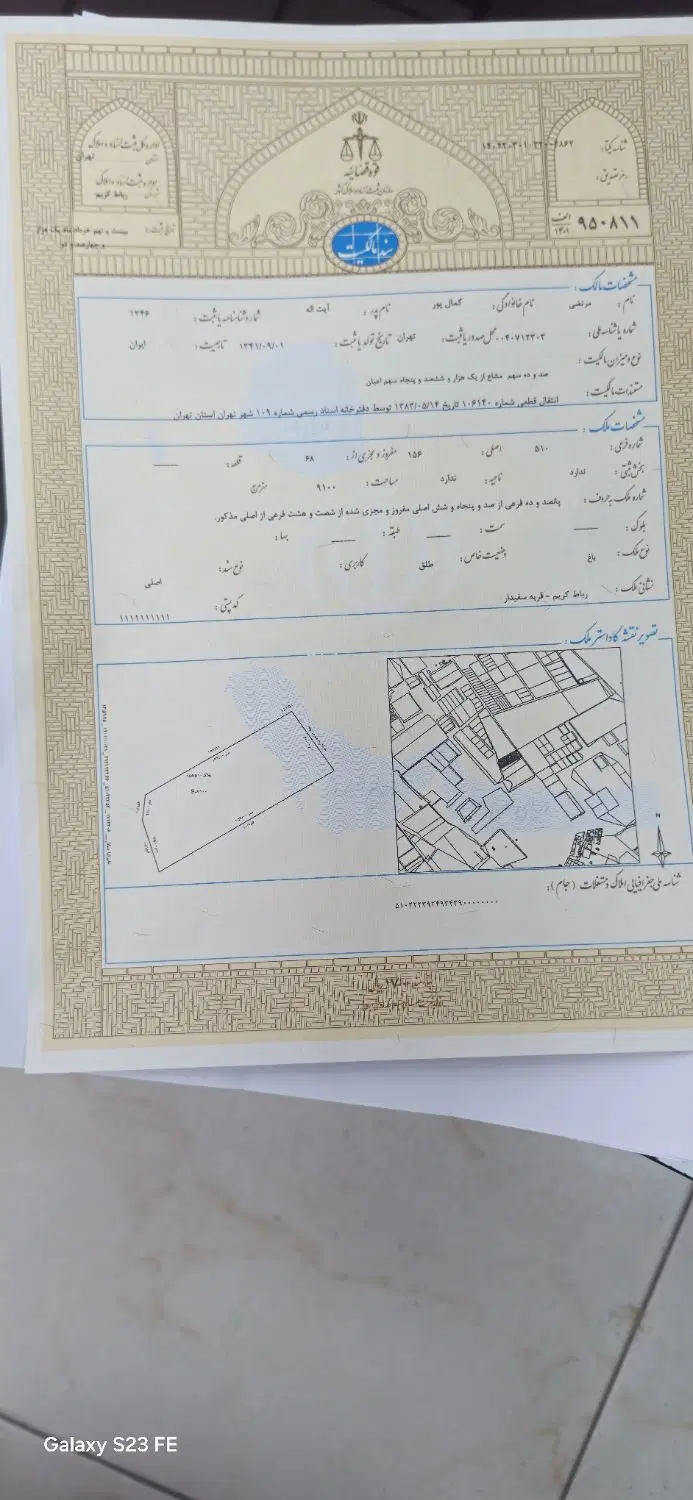 اداره کل ثبت اسناد و املاک
استان تهران
اداره ثبت اسناد و املاک
رباط کریم
تاریخ ثبت: بیست و نهم خردادماه یک هزار و چهارصد و دو
قوه قضائیه
سازمان ثبت اسناد و املاک کشور
سند مالکیت
شناسه یکتا:
رمز تصدیق:
الف ۱۴۰۱ ۹۵۰۸۱۱
مشخصات مالک:
نام: مرتضی نام خانوادگی: کمال پور نام پدر: آیت اله شماره شناسنامه یا ثبت: ۱۲۴۶
شماره یا شناسه ملی: ۰۰۴۰۷۱۲۳۰۳ محل صدور یا ثبت: تهران تاریخ تولد یا ثبت: ۱۳۴۱/۰۹/۰۱ تابعیت: ایران
نوع و میزان مالکیت: صد و ده سهم مشاع از یک هزار و ششصد و پنجاه سهم اعیان
مستندات مالکیت: انتقال قطعی شماره ۱۰۶۱۴۰ تاریخ ۱۳۸۳/۰۵/۱۴ توسط دفترخانه اسناد رسمی شماره ۱۰۹ شهر تهران استان تهران
مشخصات ملک:
شماره فرعی: ۵۱۰ اصلی: ۱۵۶ مفروز و مجزی از: ۶۸ قطعه:
بخش ثبتی: ندارد ناحیه: ندارد مساحت: ۹۱۰۰ مترمربع
شماره ملک به حروف: پانصد و ده فرعی از صد و پنجاه و شش اصلی مفروز و مجزی شده از شصت و هشت فرعی از اصلی مذکور.
بلوک: سمت: طبقه: بها:
نوع ملک: باغ وضعیت خاص: طلق کاربری: نوع سند: اصلی
نشانی ملک: رباط کریم - قریه سفیدار کد پستی: ۱۱۱۱۱۱۱۱۱۱
تصویر نقشه کاداستر ملک:
N
شناسه ملی جغرافیایی املاک و مستغلات (جام):
Galaxy S23 FE